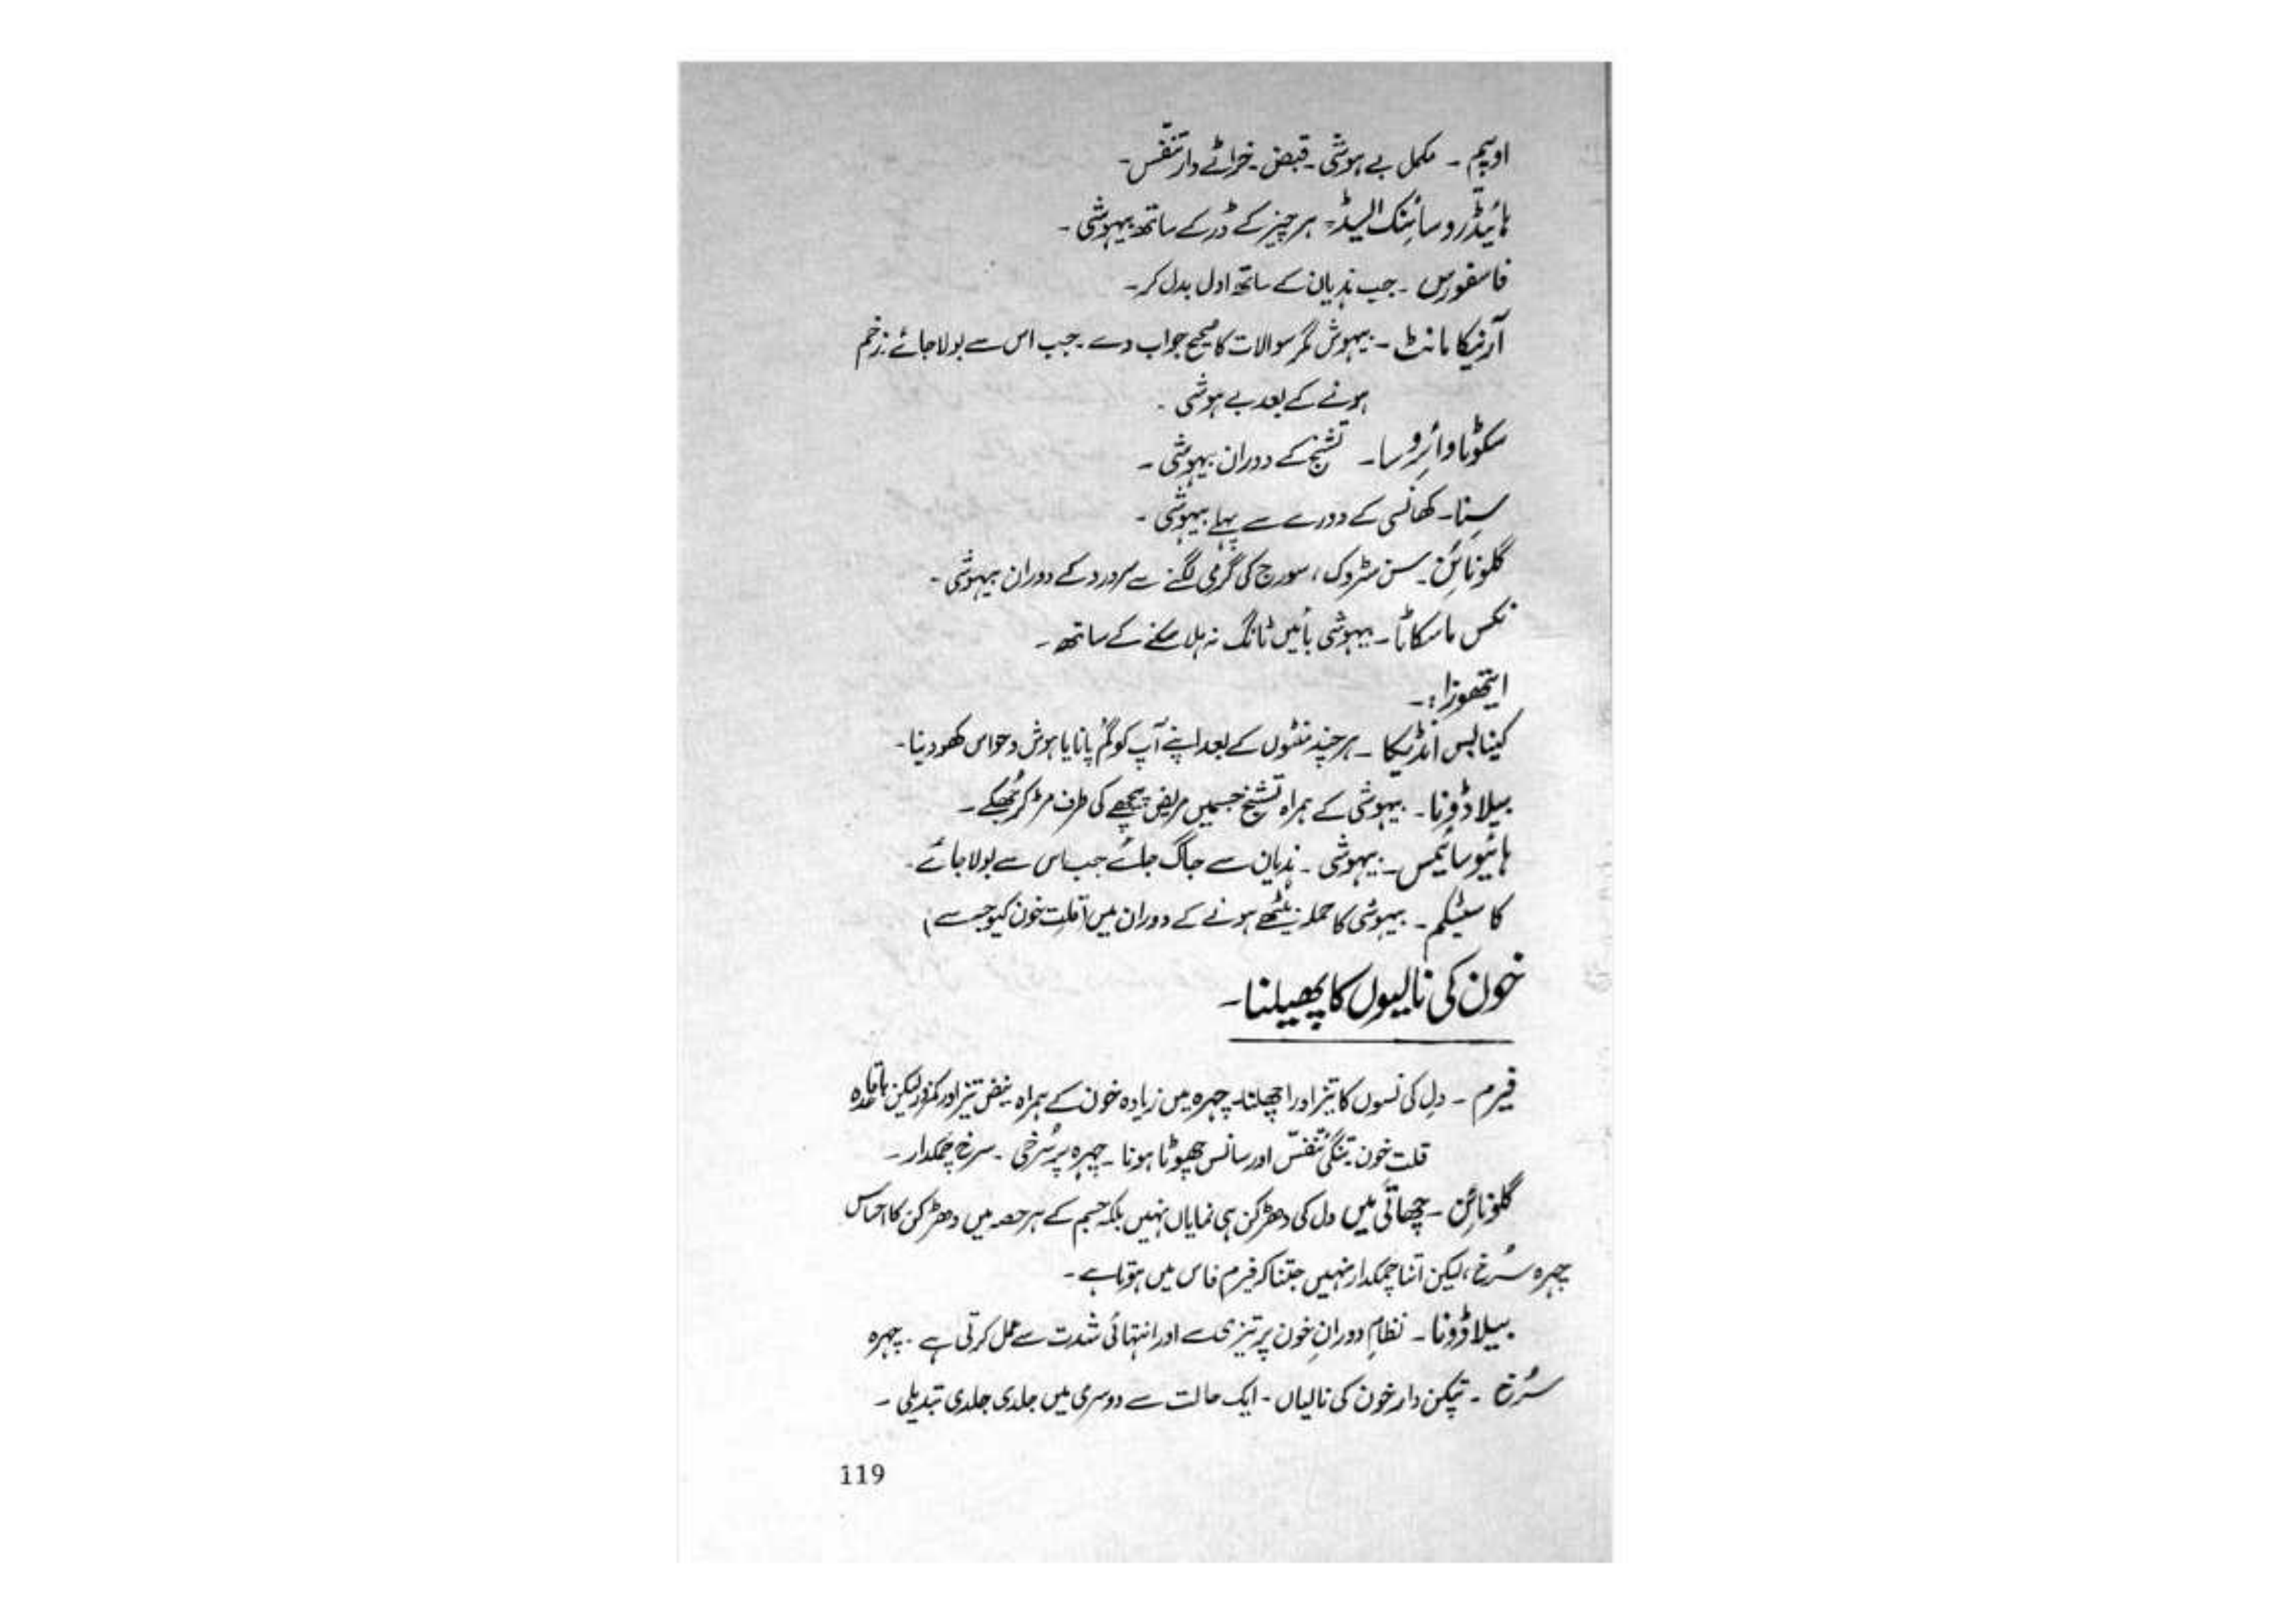 اوپیم ۔ مکمل بے ہوشی ۔ قبض ۔ خراٹے دار تنفّس ۔
ہائیڈروسائنک ایسڈ ۔ ہر چیز کے ڈر کے ساتھ بیہوشی ۔
فاسفورس ۔ جب ہذیان کے ساتھ ادل بدل کر ۔
آرنیکا مانٹ ۔ بیہوش مگر سوالات کا صحیح جواب دے ۔ جب اس سے بولا جائے ۔ زخم
ہونے کے بعد بے ہوشی ۔
سکوٹا وائروسا ۔ تشنج کے دوران بیہوشی ۔
سِنا ۔ کھانسی کے دورے سے پہلے بیہوشی ۔
گلونائن ۔ سن سٹروک ، سورج کی گرمی لگنے سے سر درد کے دوران بیہوشی ۔
نکس ماسکاٹا ۔ بیہوشی بائیں ٹانگ نہ ہلا سکنے کے ساتھ ۔
ایتھوزا :۔
کینابس انڈیکا ۔ ہر چند منٹوں کے بعد اپنے آپ کو گُم پانا یا ہوش و حواس کھو دینا ۔
بیلاڈونا ۔ بیہوشی کے ہمراہ تشنج جسمیں مریض پیچھے کی طرف مڑ کر جُھکے ۔
ہائیوسائمس ۔ بیہوشی ۔ ہذیان سے جاگ جائے جب اس سے بولا جائے ۔
کاسٹیکم ۔ بیہوشی کا حملہ بیٹھے ہونے کے دوران میں (قلت خون کیوجہ سے)
خون کی نالیوں کا پھیلنا ۔
فیرم ۔ دل کی نسوں کا تیز اور اچھلنا ۔ چہرہ میں زیادہ خون کے ہمراہ نبض تیز اور کمزور لیکن باقاعدہ
قلت خون ۔ تنگیٔ تنفّس اور سانس چھوٹا ہونا ۔ چہرہ پر سُرخی ۔ سرخ چمکدار ۔
گلونائن ۔ چھاتی میں دل کی دھڑکن ہی نمایاں نہیں بلکہ جسم کے ہر حصہ میں دھڑکن کا احساس
چہرہ سُرخ ، لیکن اتنا چمکدار نہیں جتنا کہ فیرم فاس میں ہوتا ہے ۔
بیلاڈونا ۔ نظامِ دورانِ خون پر تیزی سے اور انتہائی شدت سے عمل کرتی ہے ۔ چہرہ
سُرخ ۔ تپکن دار خون کی نالیاں ۔ ایک حالت سے دوسری میں جلدی جلدی تبدیلی ۔
119